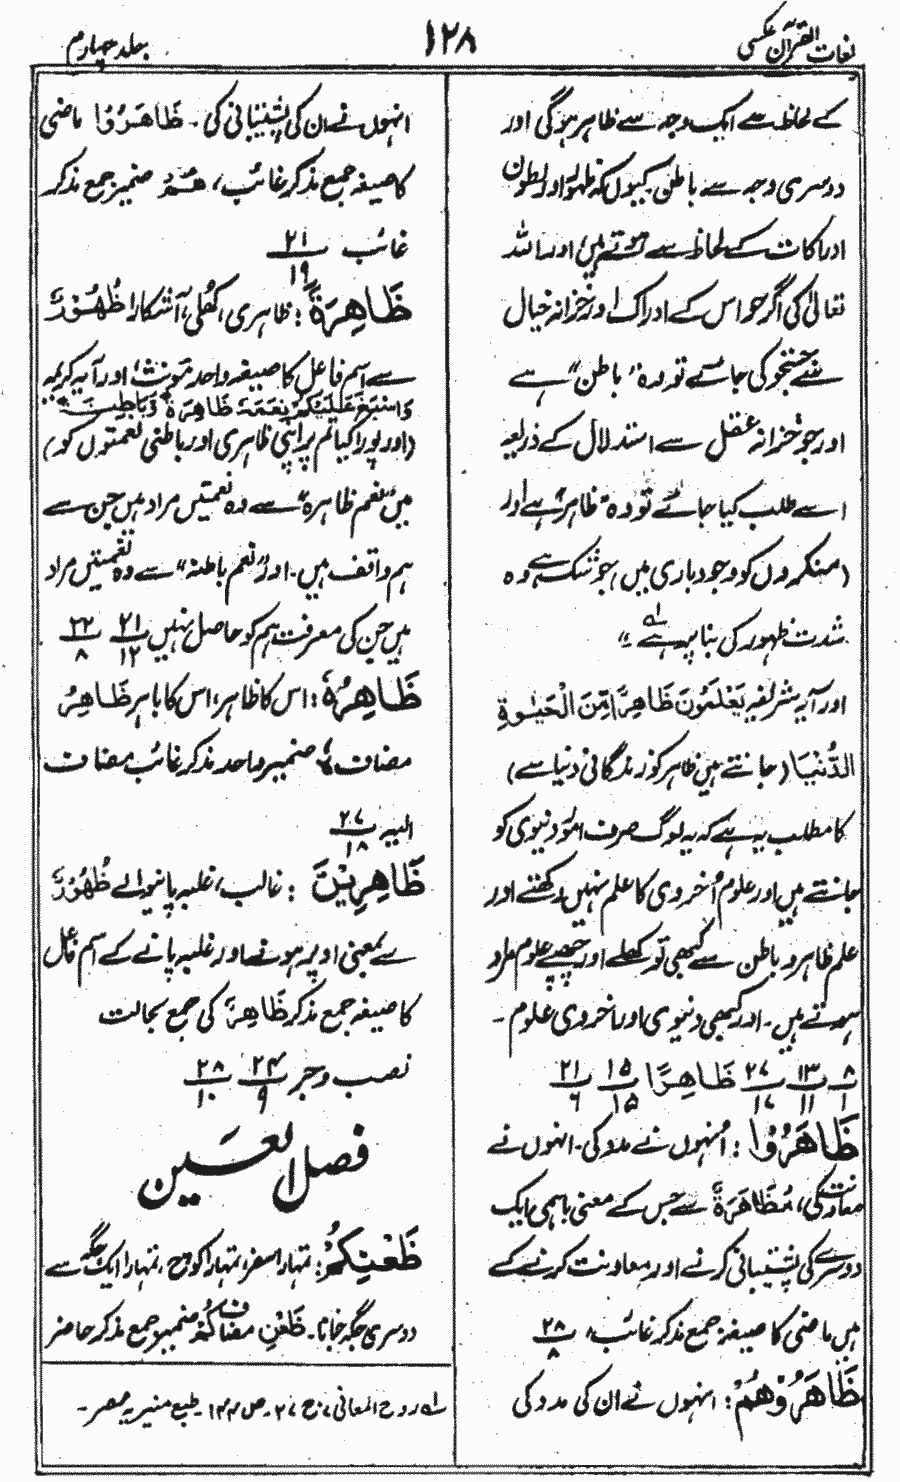 لغات القرآن عکسی
۱۲۸
جلد چہارم
کے لحاظ سے ایک وجہ سے ظاہر ہوگی اور
دوسری وجہ سے باطن۔ کیوں کہ ظہور اور بطون
ادراکات کے لحاظ سے ہوتے ہیں، اور اللہ
تعالیٰ کی اگر حواس کے ادراک اور خزانہ خیال
سے جستجو کی جائے تو وہ "باطن" ہے
اور جو خزانہ عقل سے استدلال کے ذریعہ
اسے طلب کیا جائے تو وہ "ظاہر" ہے اور
(منکروں کو وجود باری میں) جو شک ہے وہ
شدت ظہور کی بنا پر ہے لہ
اور آیہ شریفہ يَعْلَمُونَ ظَاهِرًا مِّنَ الْحَيٰوةِ
الدُّنْيَا (جانتے ہیں ظاہر کو زندگانی دنیا سے)
کا مطلب یہ ہے کہ یہ لوگ صرف امور دنیوی کو
جانتے ہیں اور علوم اخروی کا علم نہیں رکھتے اور
علم ظاہر و باطن سے کبھی تو کھلے اور چھپے علوم مراد
ہوتے ہیں۔ اور کبھی دنیوی اور اخروی علوم ۔
۸/۱ ۱۳/۱۱ ۲۷/۱۷ ظَاهِرًا ۱۵/۱۵ ۲۱/۶
ظَاهَرُوْا: اُنہوں نے مدد کی۔ انہوں نے
معاونت کی، مُظَاهَرَةٌ سے جس کے معنی باہمی ایک
دوسرے کی پشتیبانی کرنے اور معاونت کرنے کے
ہیں ماضی کا صیغہ جمع مذکر غائب، ۲۸/۸
ظَاهَرُوْهُمْ: انہوں نے ان کی مدد کی
انہوں نے ان کی پشتیبانی کی۔ ظَاهَرُوْا ماضی
کا صیغہ جمع مذکر غائب، هُمْ ضمیر جمع مذکر
غائب ۲۱/۱۹
ظَاهِرَةٌ: ظاہری، کُھلی، آشکارا ظُهُوْرٌ
سے اسم فاعل کا صیغہ واحد مؤنث، اور آیہ کریمہ
وَاَسْبَغَ عَلَيْكُمْ نِعَمَهٗ ظَاهِرَةً وَّبَاطِنَةً
(اور پورا کیا تم پر اپنی ظاہری اور باطنی نعمتوں کو)
میں "نعم ظاہرہ" سے وہ نعمتیں مراد ہیں جن سے
ہم واقف ہیں۔ اور "نعم باطنہ" سے وہ نعمتیں مراد
ہیں جن کی معرفت ہم کو حاصل نہیں ۲۱/۱۲ ۲۲/۸
ظَاهِرُهٗ: اس کا ظاہر، اس کا باہر ظَاهِرُ
مضاف، هٗ ضمیر واحد مذکر غائب مضاف
الیہ ۲۷/۱۸
ظَاهِرِيْنَ: غالب، غلبہ پانیوالے ظُهُوْرٌ
سے بمعنی اوپر ہونے اور غلبہ پانے کے اسم فاعل
کا صیغہ جمع مذکر ظَاهِرٌ کی جمع بحالت
نصب و جر ۲۴/۹ ۲۸/۱۰
فصل العین
ظَعْنِكُمْ: تمہارا سفر، تمہارا کوچ، تمہارا ایک جگہ سے
دوسری جگہ جانا۔ ظَعْنِ مضاف كُمْ ضمیر جمع مذکر حاضر
لہ روح المعانی، ج ۲۷، ص ۱۴۴۔ طبع منیریہ مصر۔